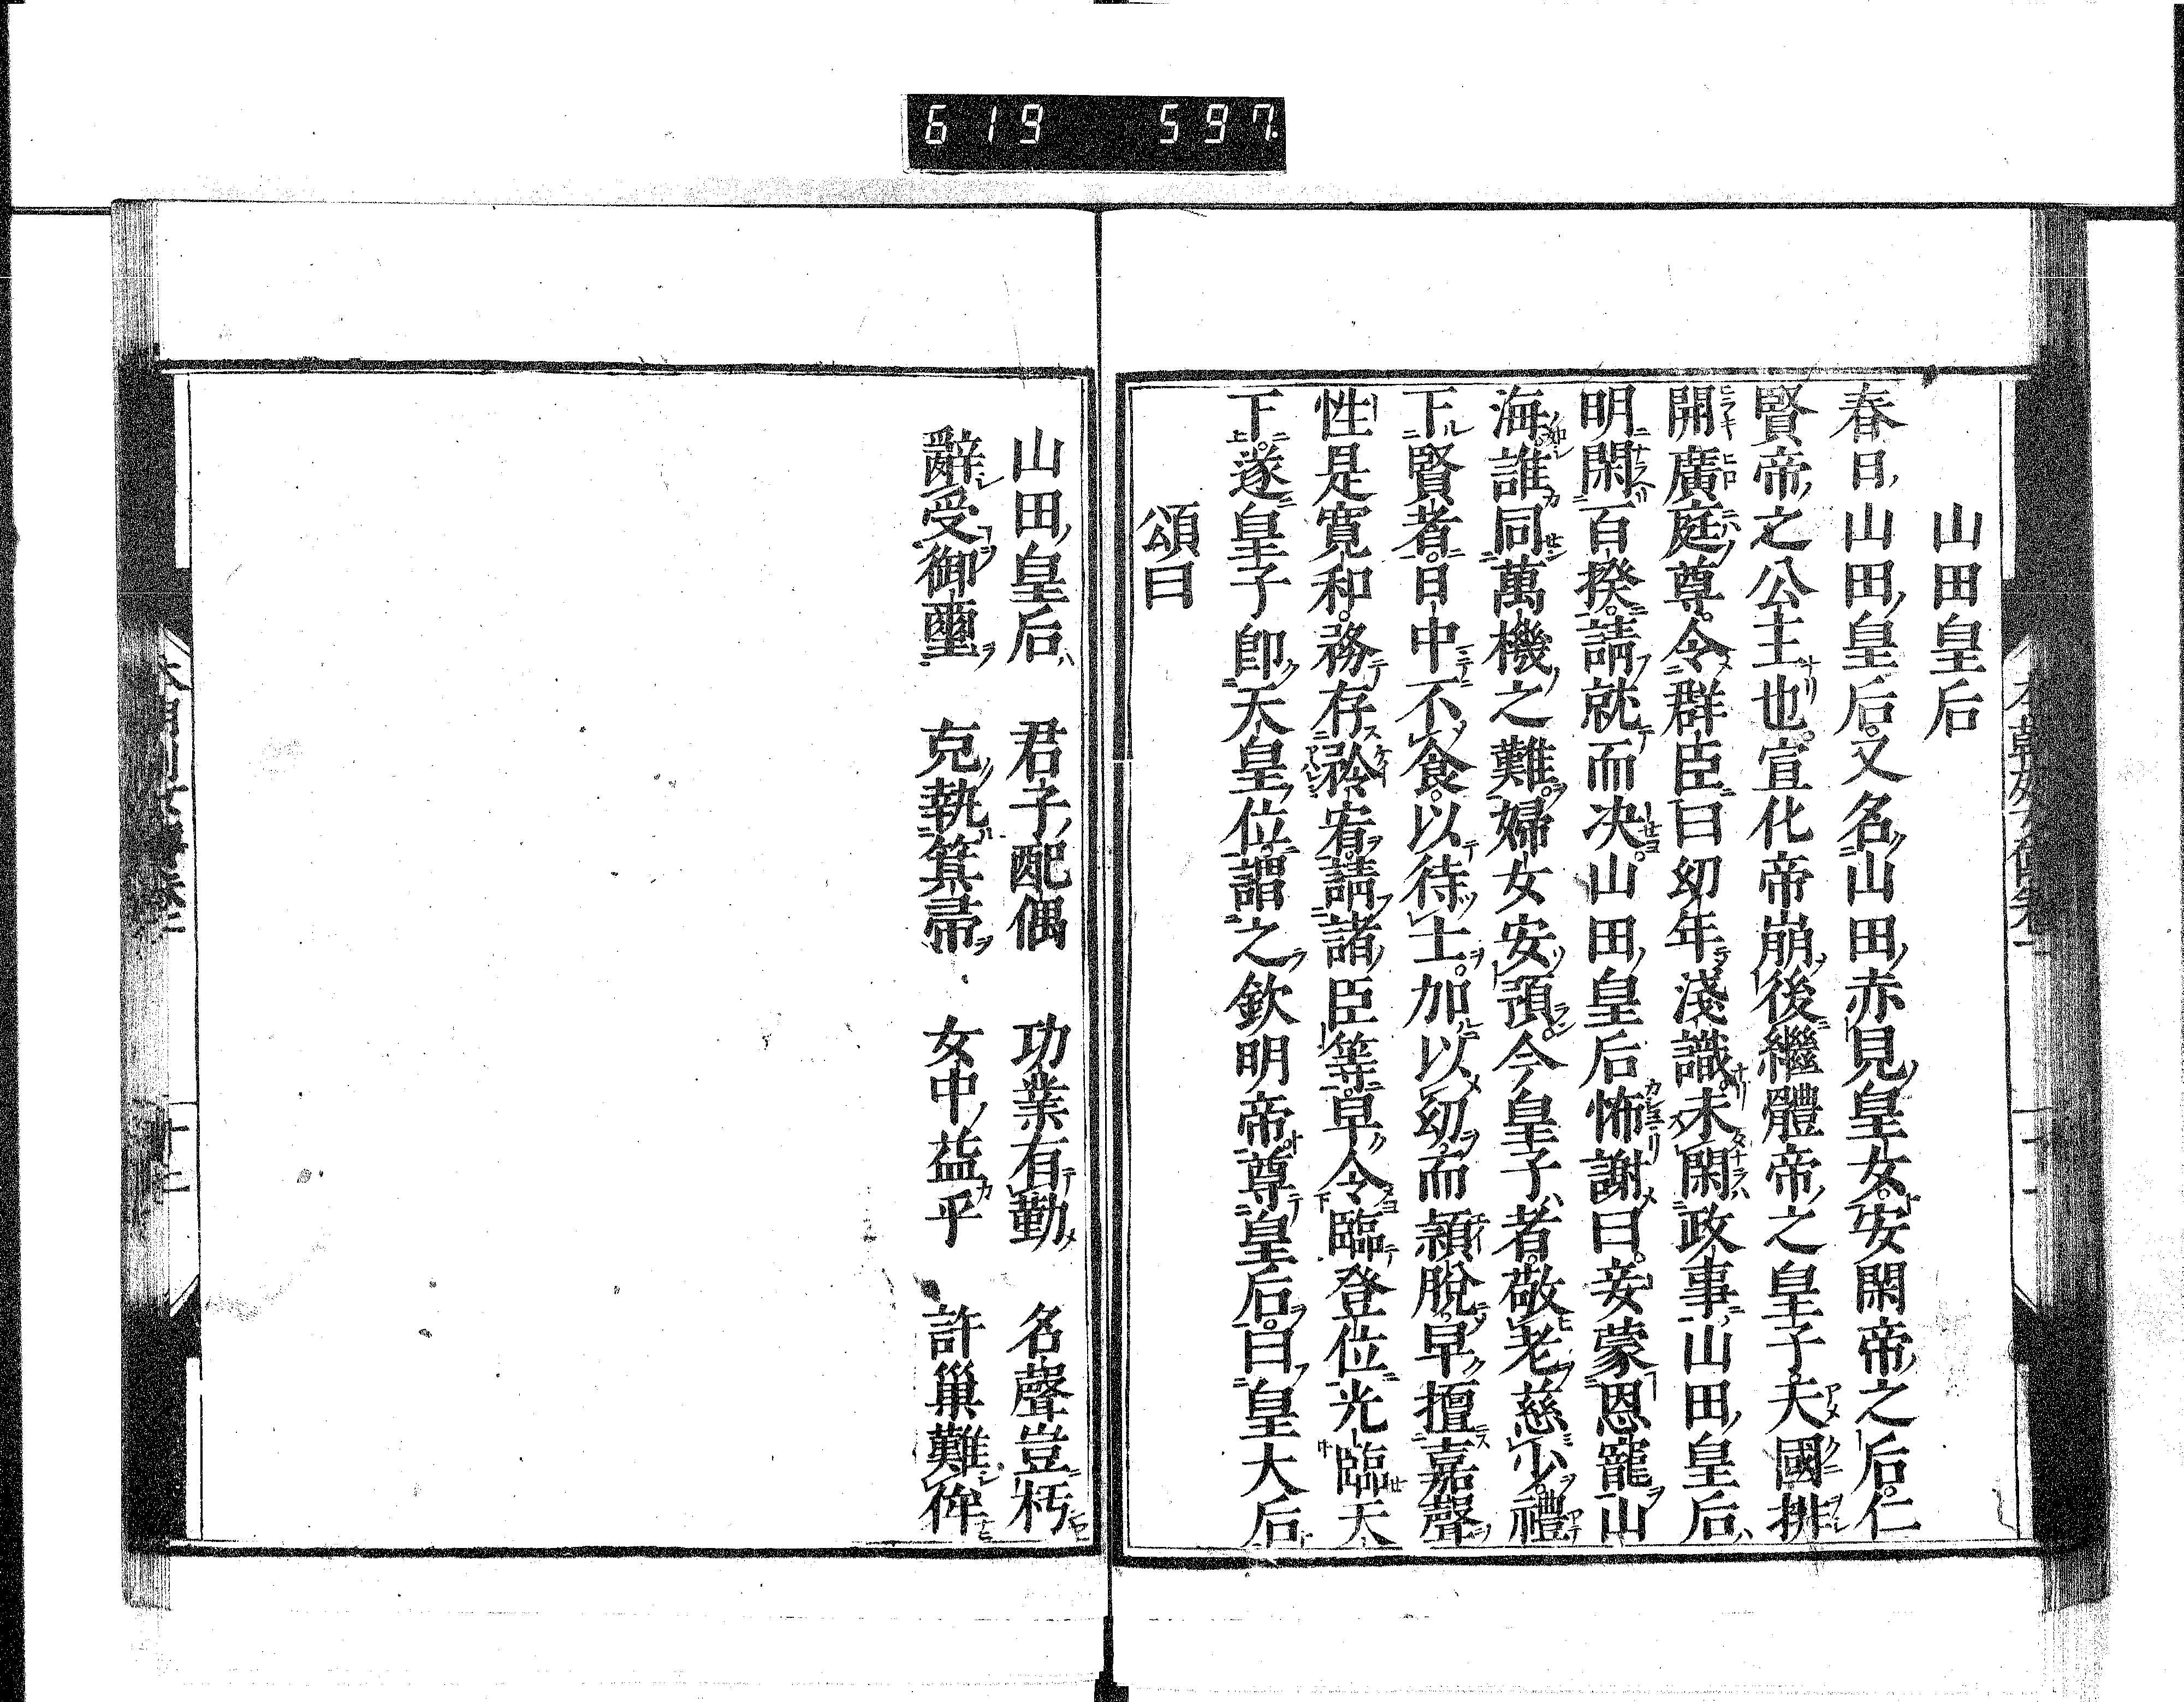 619 597
山田皇后
春日山田皇后。又名山田赤見皇女。安閑帝之后。仁
賢帝之公主也。宣化帝崩後繼體帝之皇子天國排
開廣庭尊。令群臣曰幼年淺識未閑政事山田皇后
明閑百揆。請就而决。山田皇后怖謝曰。妾蒙恩寵山
海誰同萬機之難。婦女安預。今皇子者。敬老慈少。禮
下賢者。日中不食。以待士。加以幼而頴脱早擅嘉聲
性是寛和。務存矜宥。請諸臣等。早令臨登位光臨天
下。遂皇子卽天皇位。謂之欽明帝。尊皇后。曰皇大后
頌曰
山田皇后 君子配偶 功業有勤 名聲豈朽
辭受御璽 克執箕帚 女中益乎 許巢難侔